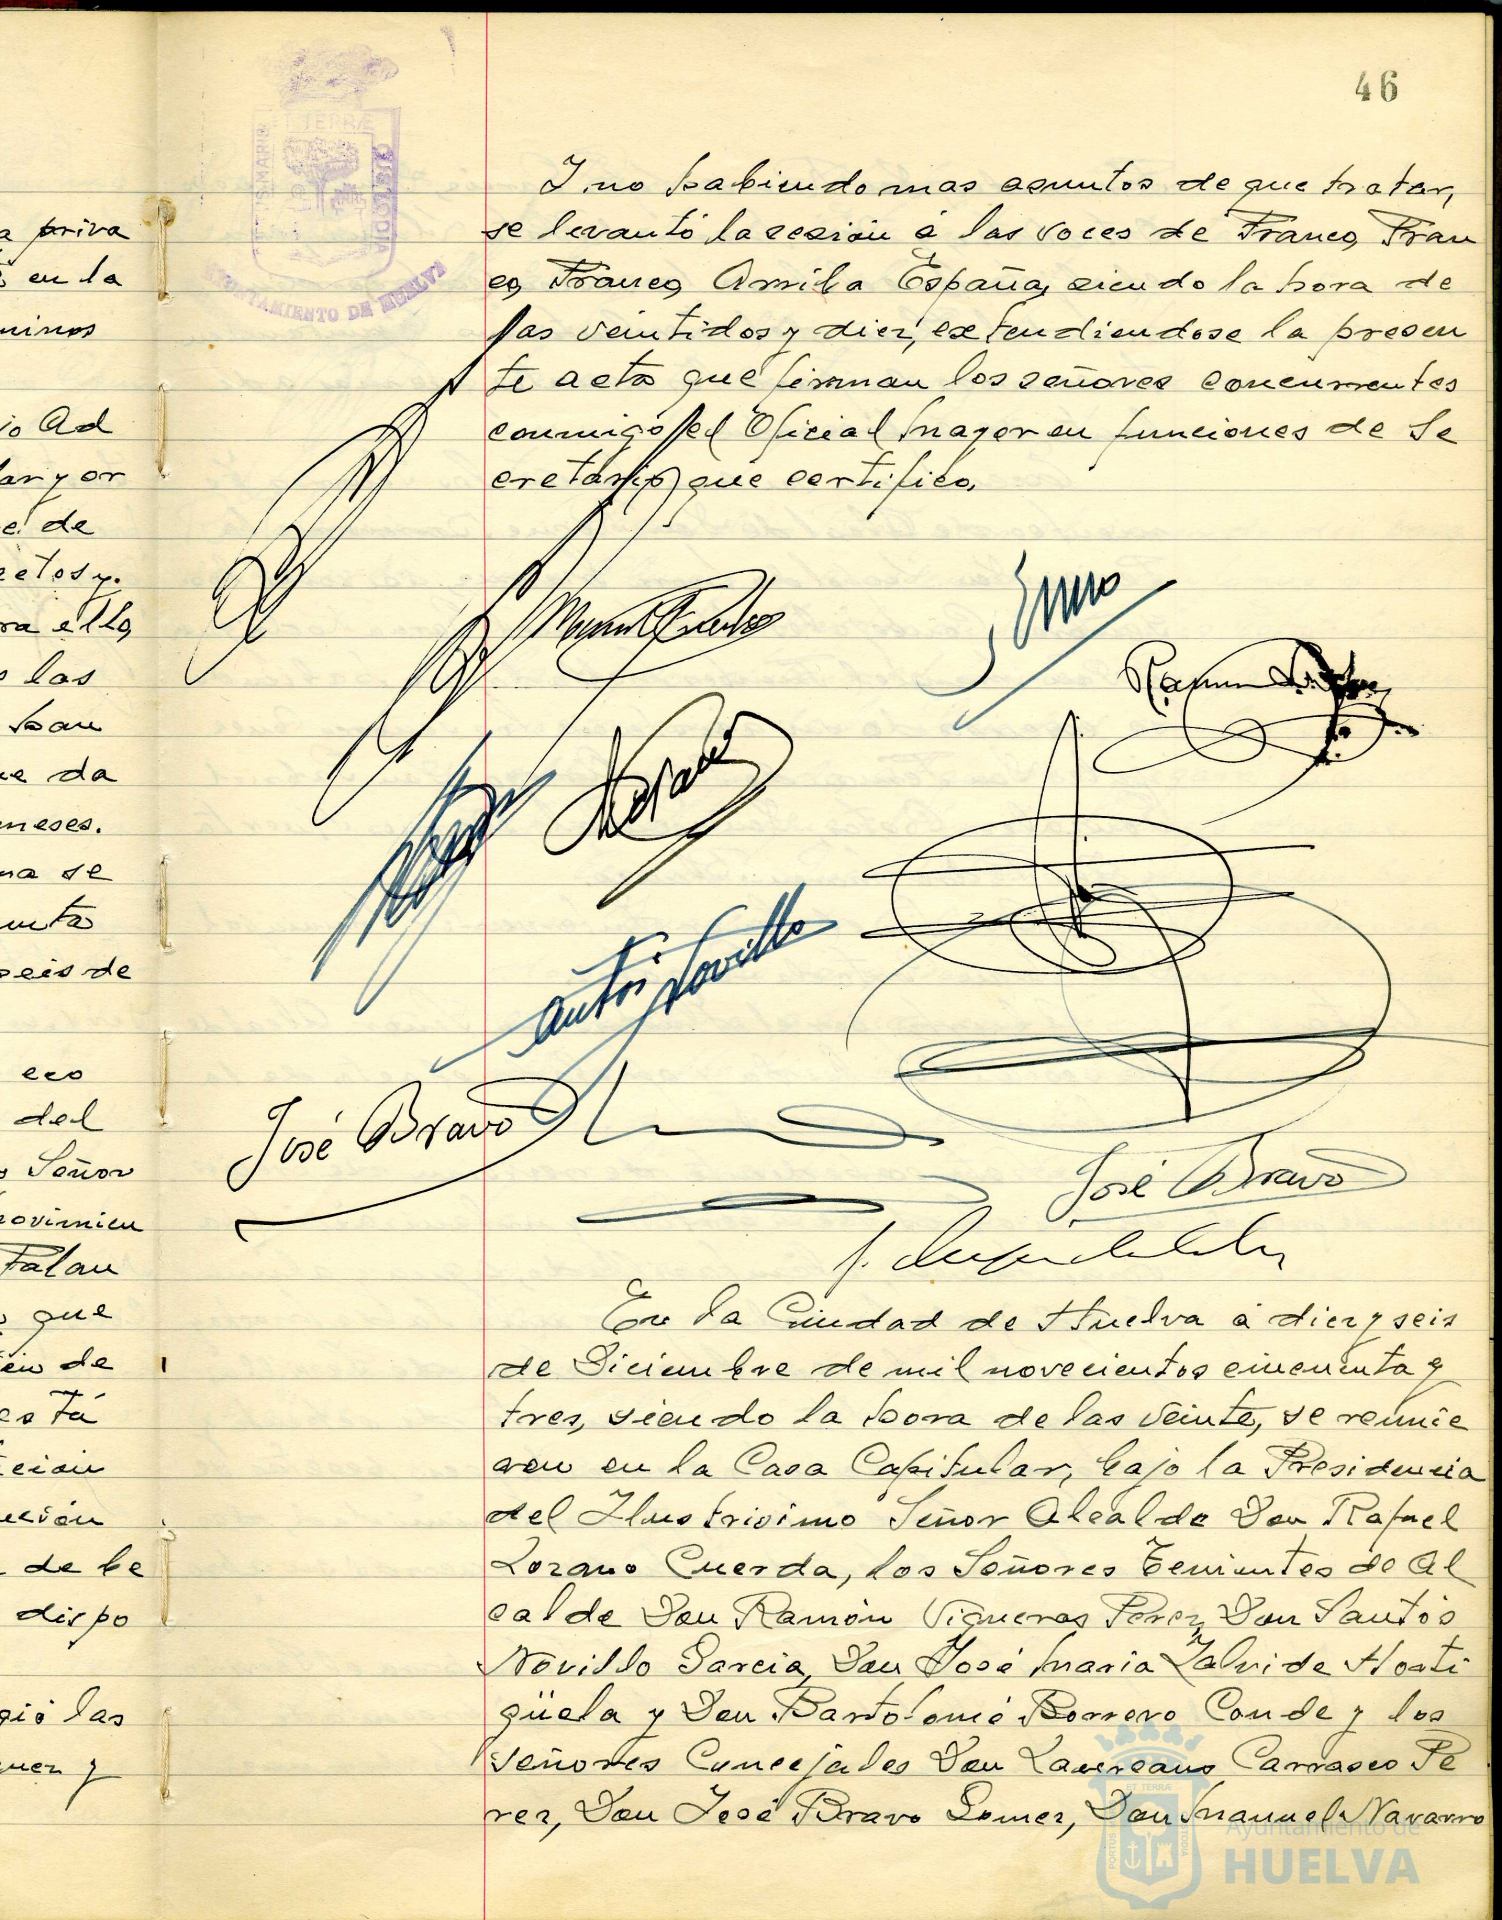 46
ET TERRÆ
MARIS
CUSTODIA
AYUNTAMIENTO DE HUELVA
a priva
en la
minos
io Ad
lar y or
e de
retos y
ra ello,
las
han
ue da
meses.
ma se
unta
seis de
eco
del
Señor
rovimien
Palan
que
de
está
ición
ución
de be
dispo
gió las
mez y
Y no habiendo mas asuntos de que tratar,
se levantó la sesión á las voces de Franco, Fran
co, Franco, Arriba España, siendo la hora de
las veintidos y diez, extendiendose la presen
te acta que firman los señores concurrentes
conmigo, el Oficial Mayor en funciones de Se
cretario, que certifico,
José Bravo
José Bravo
En la Ciudad de Huelva á diez y seis
de Diciembre de mil novecientos cincuenta y
tres, siendo la hora de las veinte, se reunie
ron en la Casa Capitular, bajo la Presidencia
del Ilustrisimo Señor Alcalde Don Rafael
Lozano Cuerda, los Señores Tenientes de Al
calde Don Ramón Vigueras Perez, Don Santos
Novillo Garcia, Don José Maria Zalvide Horti
güela y Don Bartolomé Borrero Conde y los
señores Concejales Don Laureano Carrasco Pe
rez, Don José Bravo Gomez, Don Manuel Navarro
Ayuntamiento de
HUELVA